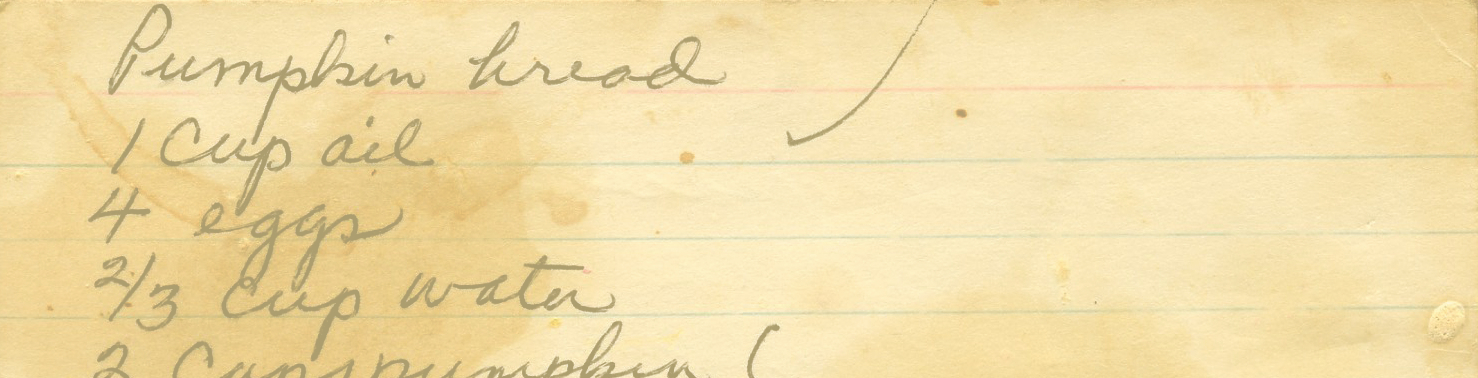 Pumpkin bread
1 cup oil
4 eggs
2/3 cup water
2 cups pumpkin (